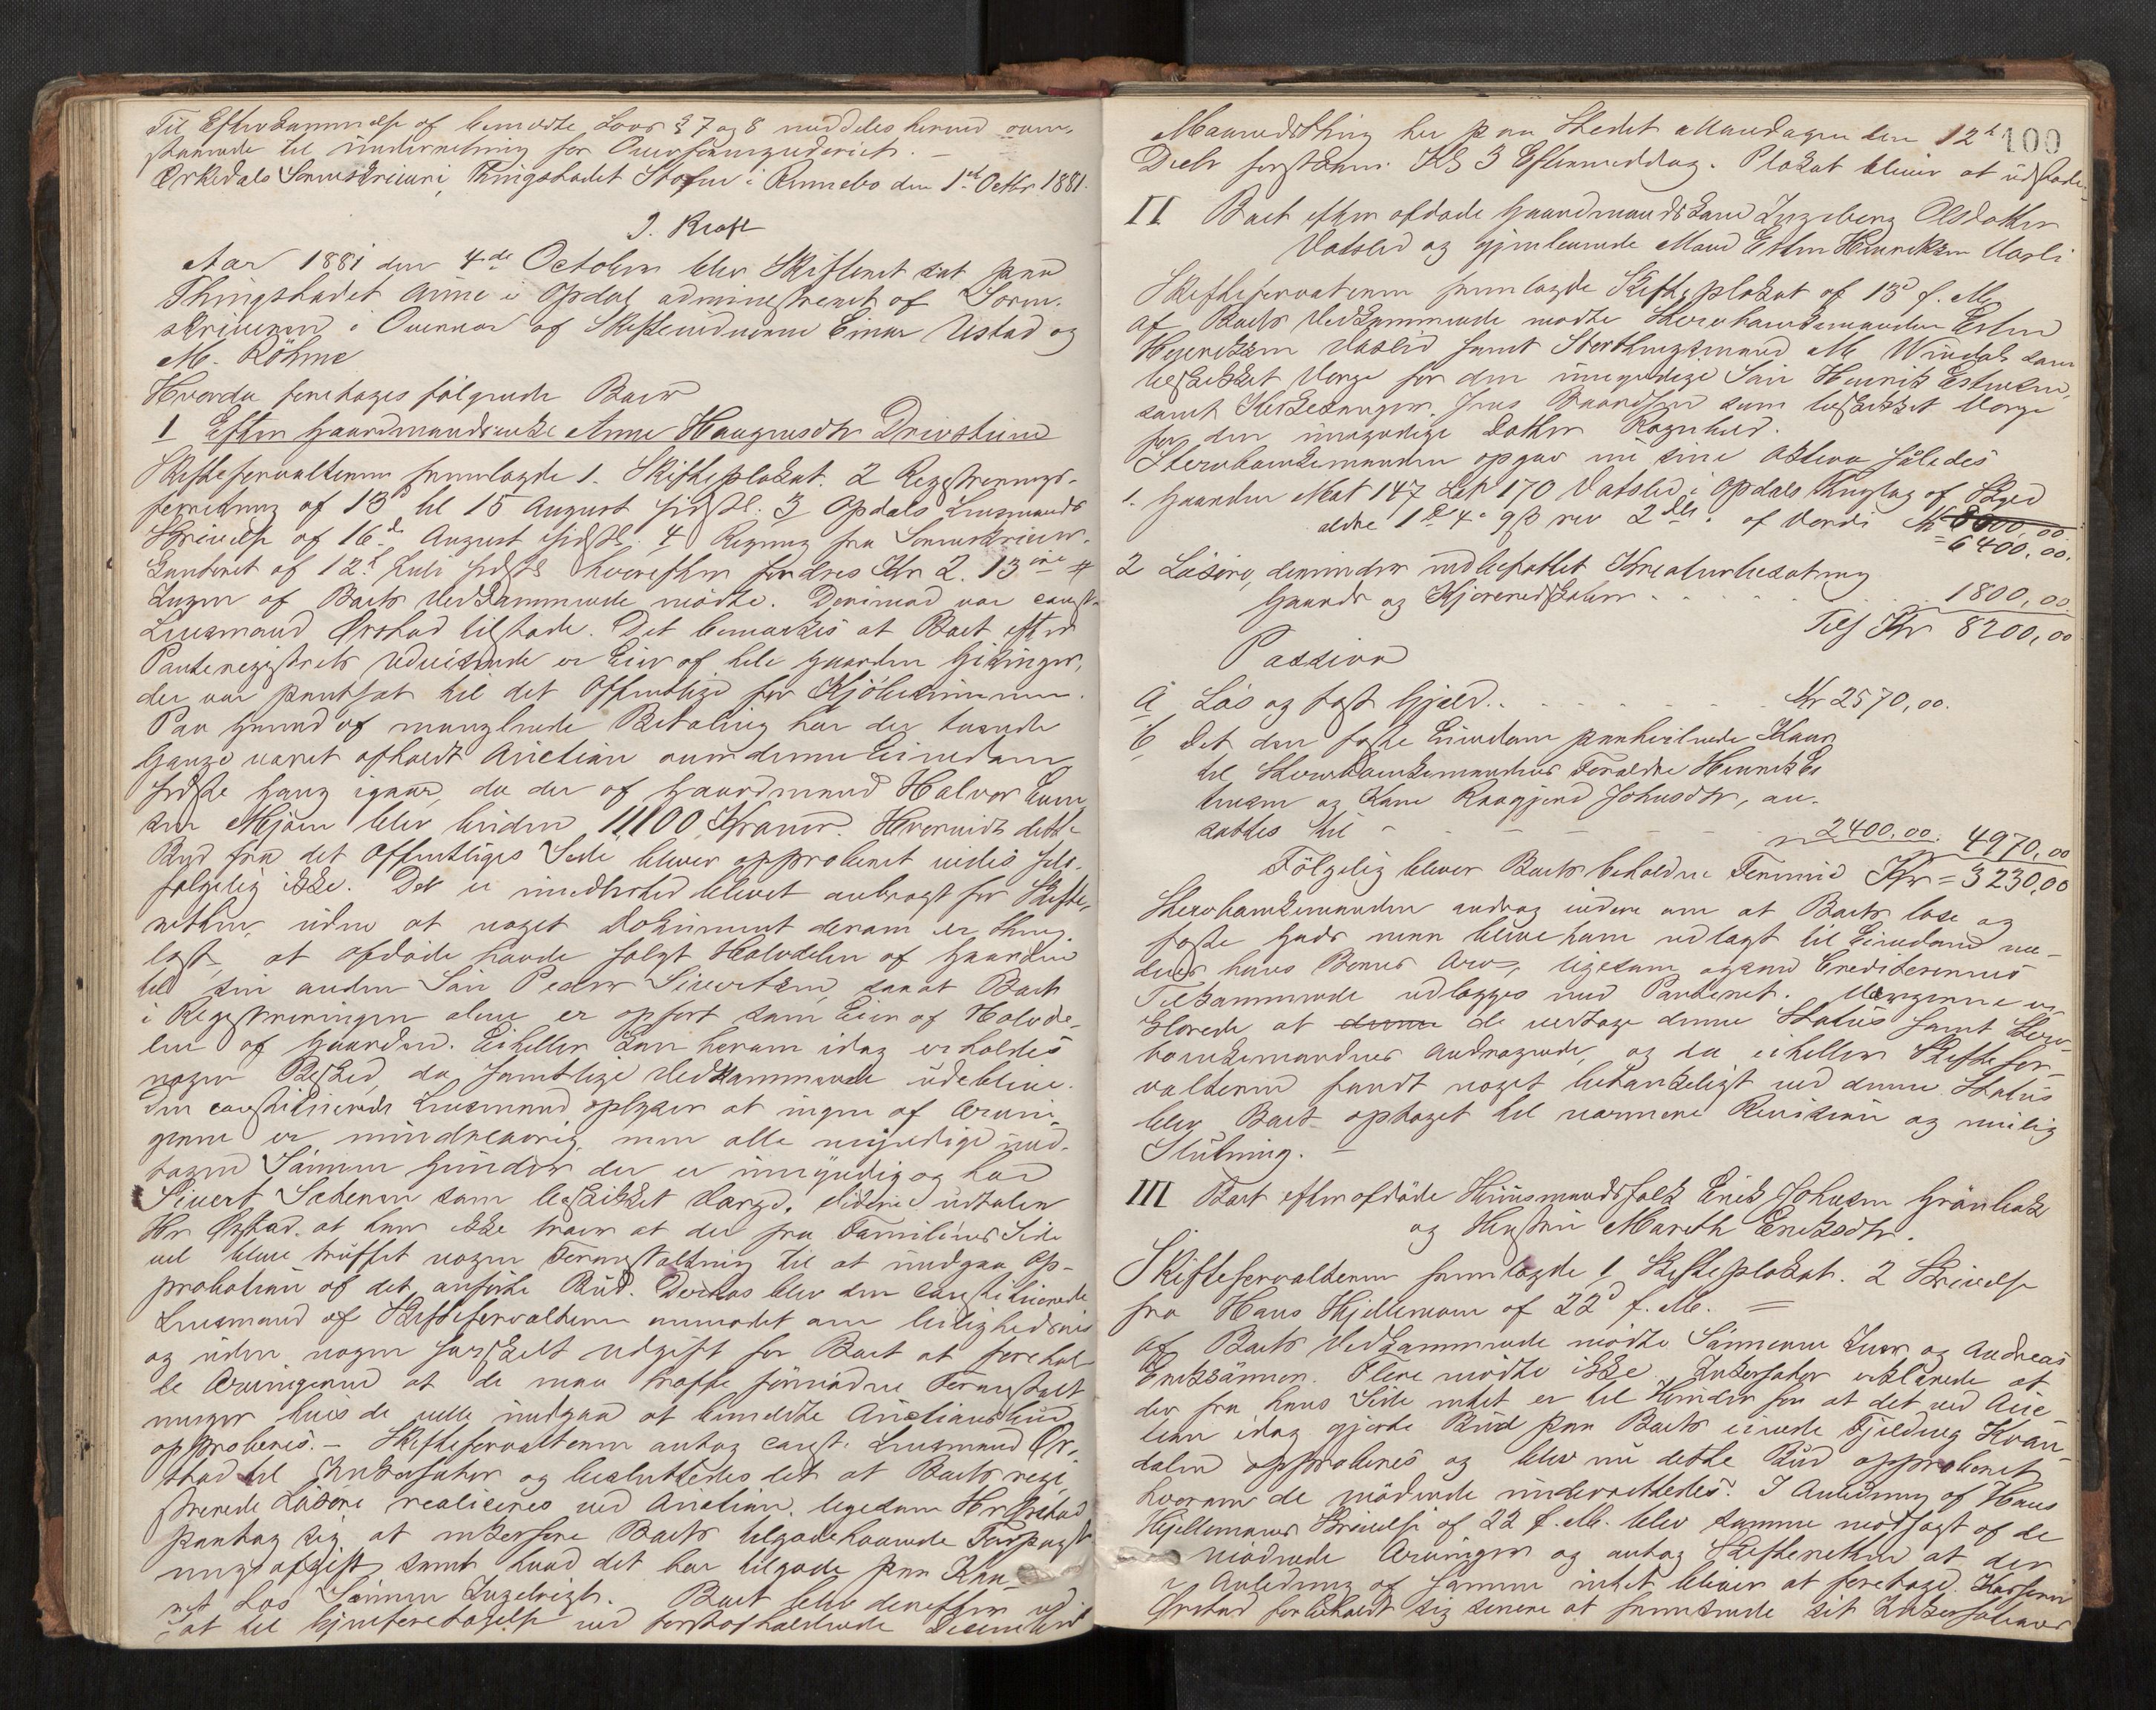 Til Efterkommelse af bemeldte Lovs § 7 og 8 meddeles herved oven-
staaende til Underretning for Overformynderiet. —
Ørkedals Sorenskriveri, Thingstedet Stofen i Rennebo den 1ste Octbr 1881.
J. Kraft
Aar 1881 den 4de October blev Skifteret sat paa
Thingstedet Aune i Opdal administreret af Soren-
skriveren i Overvær af Skiftevidnerne Einar Ustad og
M. Röhme
Hvorda foretoges følgende Boer
1 Efter Gaardmandsenke Anne Haugensdtr Drivstuen
Skifteforvalteren fremlagde 1. Skifteplakat. 2 Registrerings-
forretning af 13d til 15 August sidstl. 3 Opdals Lensmands
Skrivelse af 16de August sidstl. 4 Regning fra Sorenskriver-
kontoret af 12te Juli sidstl hvorefter fordres Kr 2. 13 öre
Ingen af Boets Vedkommende mödte. Derimod var const.
Lensmand Ørstad tilstede. Det bemærkes at Boet efter
Panteregistrets Udvisende er Eier af hele Gaarden
der var pantsat til det Offentlige for Kjöbesummen.
Paa Grund af manglende Betaling har der tvende
Gange været afholdt Auction over denne Eiendom
sidste Gang igaar, da der af Gaardmand Halvor
sen Mjøen blev buden 11,100 Kroner. Hvorvidt dette
Bud fra det Offentliges Side bliver approberet vides selv-
følgelig ikke. Det er imidlertid blevet anbragt for Skifte-
retten, uden at noget Dokument derom er thing-
lyst, at afdøde havde solgt Halvdelen af Gaarden
til sin anden Sön Peder Sivertsen, saa at Boet
i Registreringen alene er opfört som Eier af Halvde-
len af Gaarden. Eiheller kan herom idag erholdes
nogen Besked, da samtlige Vedkommende udeblive.
Den constituerede Lensmand oplyser at ingen af Arvin-
gerne er mindreaarig, men alle myndige und-
tagen Sönnen Gunder, der er umyndig og har
Sivert som beskikket Værge. Videre udtaler
Hr Ørstad at han ikke troer at der fra Familiens Side
vil blive truffet nogen Foranstaltning til at undgaa Ap-
probation af det anførte Bud. Derhos blev den Constituerede
Lensmand af Skifteforvalteren anmodet om leilighedsvis
og uden nogen særskilt Udgift for Boet at forehol-
de Arvingerne at de maa træffe fornödne Foranstalt
ninger hvis de ville undgaa at bemeldte Auctionsbud
approberes. — Skifteforvalteren antog const. Lensmand Ør-
stad til Inkassator og besluttedes det at Boets regi-
strerede Lösöre realiseres ved Auction, ligesom Hr Ørstad
paatog sig at inkassere Boets tilgodehavende Forpagt-
ningsafgift samt hvad det har tilgode paa
ret hos Sönnen Ingebrigt. Boet blev derefter ud-
sat til Gjenforetagelse ved förstafholdende December
Maanedsthing her paa Stedet Mandagen den 12te 100
Decbr förstkom. Kl 3 Eftermiddag. Plakat bliver at udstæde.
II Boet efter afdøde Gaardmandskone Ingeborg Olsdatter
Vatslid og gjenlevende Mand Esten Henriksen Vasli
Skifteforvalteren fremlagde Skifteplakat af 13d f. M.
Af Boets Vedkommende mödte Stervboenkemanden Esten
Henriksen Vatslid samt Storthingsmand M Windal som
beskikket Verge for den umyndige Sön Henrik Estensen,
samt Kirkesanger Jens Baardsen som beskikket Verge
for den umyndige Datter Ragnhild.
Stervboenkemanden opgav nu sine Aktiva således
1. Gaarden Mat 147 Løb 170 Vatslid i Opdals Thinglag af Skyld
ældre 1 D 4 o 9 ß rev 2 Dlr. af Verdi Kr 8000,00.
= 6400,00.
2 Lösöre, derunder indbefattet Kreaturbesætning
Gaards og Kjøreredskaber . . . 1800,00
Tils Kr 8200,00
Passiva
a Lös og fast Gjæld . . . . . Kr 2570,00.
b Det den faste Eiendom paahvilende Kaar
til Stervboenkemandens Forældre Henrik Es
tensen og Kone Ragnhild Johnsdtr, an-
sættes til — — — — — " 2400,00. 4970,00
Fölgelig bliver Boets beholdne Formue Kr = 3230,00
Stervboenkemanden androg videre om at Boets løse og
faste Gods maa blive ham udlagt til Eiendom mu-
dens hans Börns Arv, ligesom ogsaa Creditorernes
Tilkommende udlægges med Panteret. Vergerne er-
klærede at denne de vedtage denne Status samt Sterv-
boenkemandens Andragende, og da eiheller Skiftefor-
valteren fandt noget betænkeligt ved denne Status
blev Boet optaget til nærmere Revision og mulig
Slutning. —
III Boet efter afdöde Huusmandsfolk Erik Johnsen Grönbak
og Hustru Mareth Eriksdtr.
Skifteforvalteren fremlagde 1, Skifteplakat. 2 Skrivelse
fra Hans Hjellemoen af 22d f. M. =
Af Boets Vedkommende mödte Sönnerne Iver og Andreas
Eriksönner. Flere mödte ikke. Inkassator erklærede at
der fra hans Side intet er til Hinder for at det ved Auc-
tion idag gjorte Bud paa Boets eiende Fjeldeng
dalen approberes og blev nu dette Bud approberet
hvorom de mödende underrettedes. I Anledning af Hans
Hjellemoens Skrivelse af 22 f. M. blev samme modsagt af de
mödende Arvinger og antog Skifteretten at der
i Anledning af samme intet bliver at foretage. Kasserer
Ørstad forbeholdt sig senere at fremsende sit Inkassations